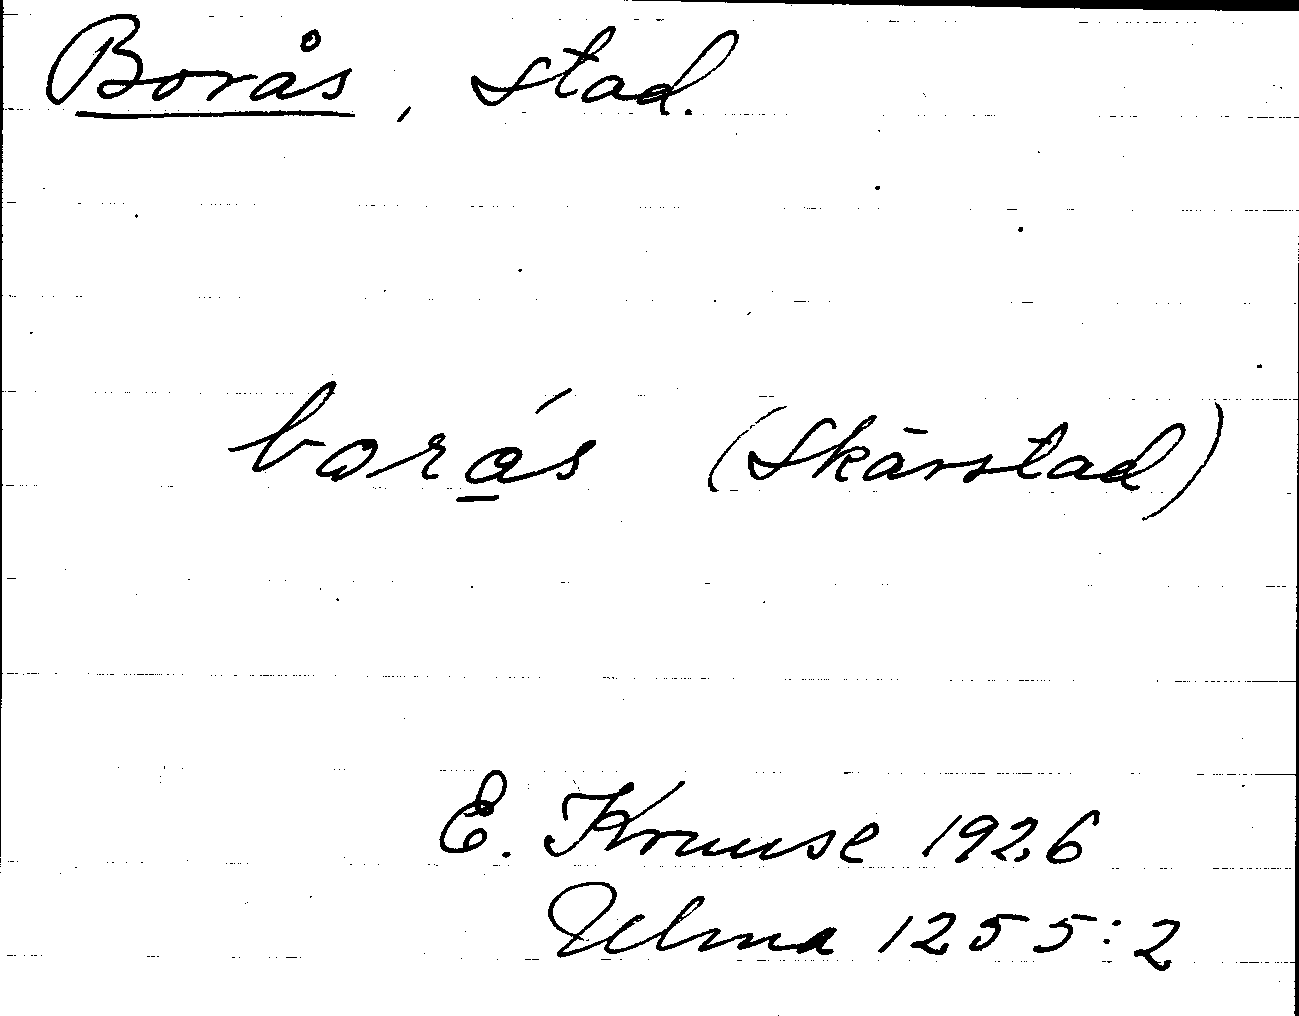 Borås, stad.
borås (Skärstad)
E. Kruuse 1926
Ulma 1255:2